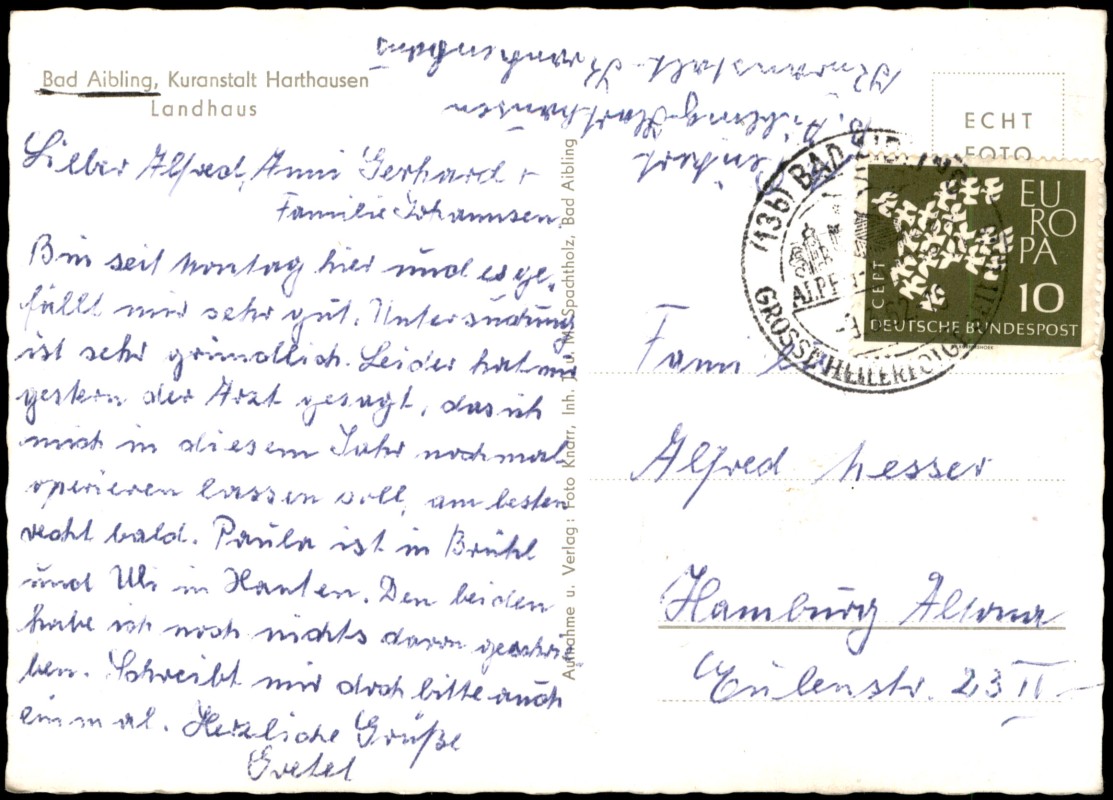 Bad Aibling, Kuranstalt Harthausen
Landhaus
Lieber Alfred, Anni Gerhard +
Familie Johannsen,
Bin seit Montag hier und es ge-
fällt mir sehr gut. Untersuchung
ist sehr gründlich. Leider hat mir
gestern der Arzt gesagt, das ich
mich in diesem Jahr nochmal
operieren lassen soll, am besten
recht bald. Paula ist in Brühl
und Uli in Xanten. Den beiden
habe ich noch nichts davon geschrie
ben. Schreibt mir doch bitte auch
einmal. Herzliche Grüße
Gretel
Aufnahme u. Verlag: Foto Knarr, Inh. J. U. M. Spachtholz, Bad Aibling
B. Aibling-Harthausen
Kuranstalt-Krankenhaus
ECHT
FOTO
(13b) BAD
ALPE
62
GROSSE HEILERFOLGE
EUROPA
CEPT
10
DEUTSCHE BUNDESPOST
Familie
Alfred Messer
Hamburg Altona
Eulenstr. 23 II